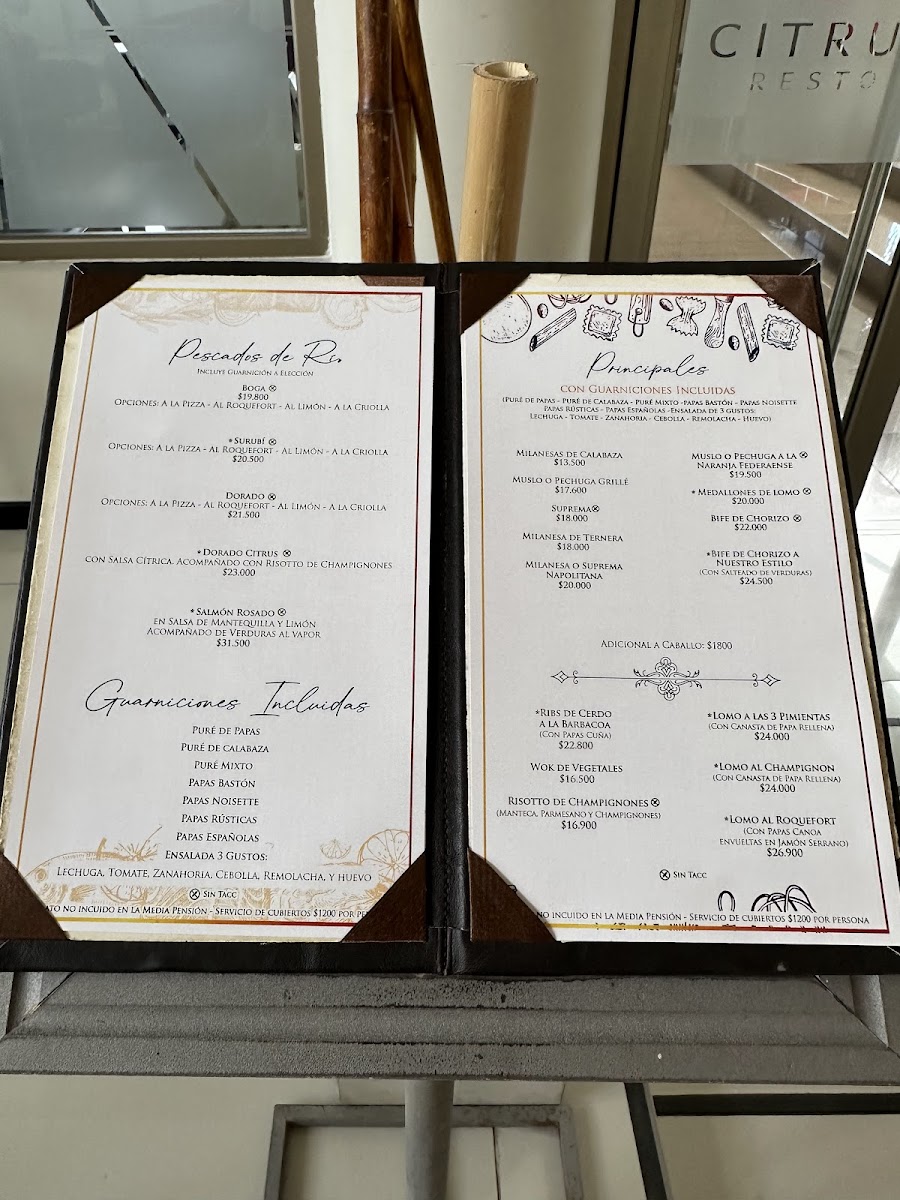 CITRU
RESTO
Pescados de Río
Incluye Guarnición a Elección
Boga
$19.800
Opciones: A la Pizza - Al Roquefort - Al Limón - A la Criolla
*Surubí
Opciones: A la Pizza - Al Roquefort - Al Limón - A la Criolla
$20.500
Dorado
Opciones: A la Pizza - Al Roquefort - Al Limón - A la Criolla
$21.500
*Dorado Citrus
con Salsa Cítrica, Acompañado con Risotto de Champignones
$23.000
*Salmón Rosado
en Salsa de Mantequilla y Limón
Acompañado de Verduras al vapor
$31.500
Guarniciones Incluidas
Puré de Papas
Puré de calabaza
Puré Mixto
Papas Bastón
Papas Noisette
Papas Rústicas
Papas Españolas
Ensalada 3 Gustos:
Lechuga, Tomate, Zanahoria, Cebolla, Remolacha, y huevo
Sin Tacc
ato no incuido en la Media Pensión - Servicio de cubiertos $1200 por pe
Principales
con Guarniciones Incluidas
(Puré de papas - Puré de Calabaza - Puré Mixto -Papas Bastón - Papas Noisette
Papas Rústicas - Papas Españolas -Ensalada de 3 gustos:
Lechuga - Tomate - Zanahoria - Cebolla - Remolacha - Huevo)
Milanesas de Calabaza
$13.500
Muslo o Pechuga Grillé
$17.600
Suprema
$18.000
Milanesa de Ternera
$18.000
Milanesa o Suprema
Napolitana
$20.000
Muslo o Pechuga a la
Naranja Federaense
$19.500
*Medallones de lomo
$20.000
Bife de Chorizo
$22.000
*Bife de Chorizo a
Nuestro Estilo
(Con Salteado de verduras)
$24.500
Adicional a Caballo: $1800
*Ribs de Cerdo
a la Barbacoa
(Con Papas Cuña)
$22.800
Wok de Vegetales
$16.500
Risotto de Champignones
(Manteca, Parmesano y Champignones)
$16.900
*Lomo a las 3 Pimientas
(Con Canasta de Papa Rellena)
$24.000
*Lomo al Champignon
(Con Canasta de Papa Rellena)
$24.000
*Lomo al Roquefort
(Con Papas Canoa
envueltas en Jamón Serrano)
$26.900
Sin Tacc
no incuido en la Media Pensión - Servicio de cubiertos $1200 por persona